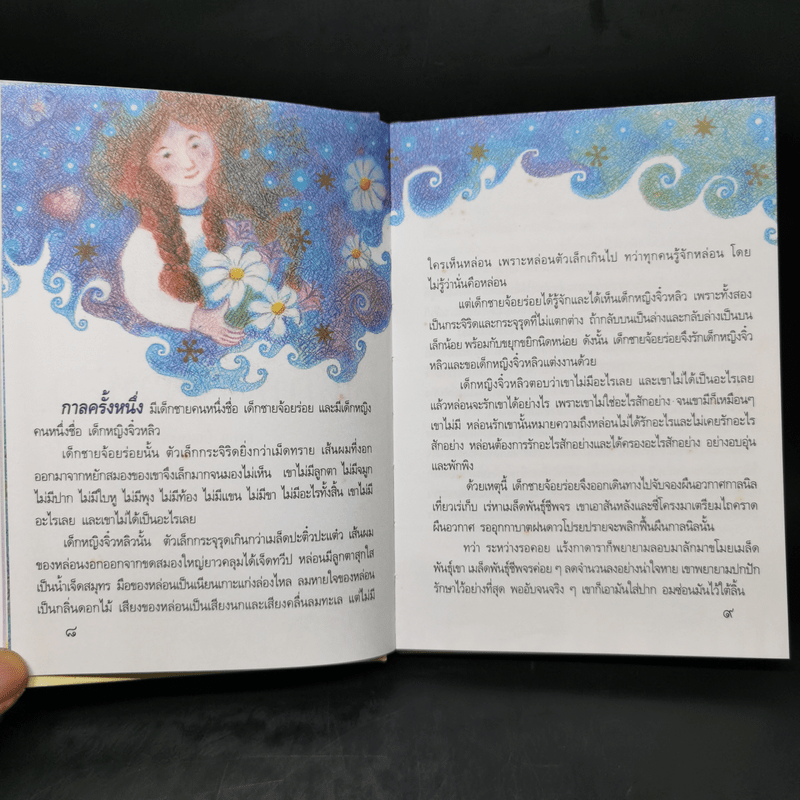 กาลครั้งหนึ่ง มีเด็กชายคนหนึ่งชื่อ เด็กชายจ้อยร่อย และมีเด็กหญิง
คนหนึ่งชื่อ เด็กหญิงจิ๋วหลิว
เด็กชายจ้อยร่อยนั้น ตัวเล็กกระจิริดยิ่งกว่าเม็ดทราย เส้นผมที่งอก
ออกมาจากหยักสมองของเขาจึงเล็กมากจนมองไม่เห็น เขาไม่มีลูกตา ไม่มีจมูก
ไม่มีปาก ไม่มีใบหู ไม่มีพุง ไม่มีท้อง ไม่มีแขน ไม่มีขา ไม่มีอะไรทั้งสิ้น เขาไม่มี
อะไรเลย และเขาไม่ได้เป็นอะไรเลย
เด็กหญิงจิ๋วหลิวนั้น ตัวเล็กกระจุรุดเกินกว่าเมล็ดปะติ๋วปะแต๋ว เส้นผม
ของหล่อนงอกออกจากขดสมองใหญ่ยาวคลุมได้เจ็ดทวีป หล่อนมีลูกตาสุกใส
เป็นน้ำเจ็ดสมุทร มือของหล่อนเป็นเนียนเกาะแก่งล่องไหล ลมหายใจของหล่อน
เป็นกลิ่นดอกไม้ เสียงของหล่อนเป็นเสียงนกและเสียงคลื่นลมทะเล แต่ไม่มี
๘
ใครเห็นหล่อน เพราะหล่อนตัวเล็กเกินไป ทว่าทุกคนรู้จักหล่อน โดย
ไม่รู้ว่านั่นคือหล่อน
แต่เด็กชายจ้อยร่อยได้รู้จักและได้เห็นเด็กหญิงจิ๋วหลิว เพราะทั้งสอง
เป็นกระจิริดและกระจุรุดที่ไม่แตกต่าง ถ้ากลับบนเป็นล่างและกลับล่างเป็นบน
เล็กน้อย พร้อมกับขยุกขยิกนิดหน่อย ดังนั้น เด็กชายจ้อยร่อยจึงรักเด็กหญิงจิ๋ว
หลิวและขอเด็กหญิงจิ๋วหลิวแต่งงานด้วย
เด็กหญิงจิ๋วหลิวตอบว่าเขาไม่มีอะไรเลย และเขาไม่ได้เป็นอะไรเลย
แล้วหล่อนจะรักเขาได้อย่างไร เพราะเขาไม่ใช่อะไรสักอย่าง จนเขามีก็เหมือนๆ
เขาไม่มี หล่อนรักเขานั้นหมายความถึงหล่อนไม่ได้รักอะไรและไม่เคยรักอะไร
สักอย่าง หล่อนต้องการรักอะไรสักอย่างและได้ครองอะไรสักอย่าง อย่างอบอุ่น
และพักพิง
ด้วยเหตุนี้ เด็กชายจ้อยร่อยจึงออกเดินทางไปจับจองผืนอวกาศกาลนิล
เที่ยวเร่เก็บ เร่หาเมล็ดพันธุ์ชีพจร เขาเอาสันหลังและซี่โครงมาเตรียมไถคราด
ผืนอวกาศ รออุกกาบาตฝนดาวโปรยปรายจะพลิกฟื้นผืนกาลนิลนั้น
ทว่า ระหว่างรอคอย แร้งกาดาราก็พยายามลอบมาลักมาขโมยเมล็ด
พันธุ์เขา เมล็ดพันธุ์ชีพจรค่อย ๆ ลดจำนวนลงอย่างน่าใจหาย เขาพยายามปกปัก
รักษาไว้อย่างที่สุด พออับจนจริง ๆ เขาก็เอามันใส่ปาก อมซ่อนมันไว้ใต้ลิ้น
๙